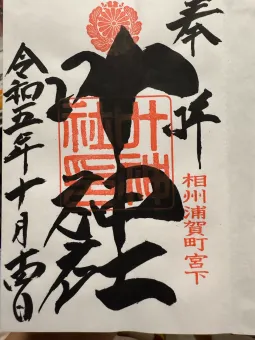 奉拝
相州浦賀町宮下
叶神社
叶神社印
令和五年十月吉日